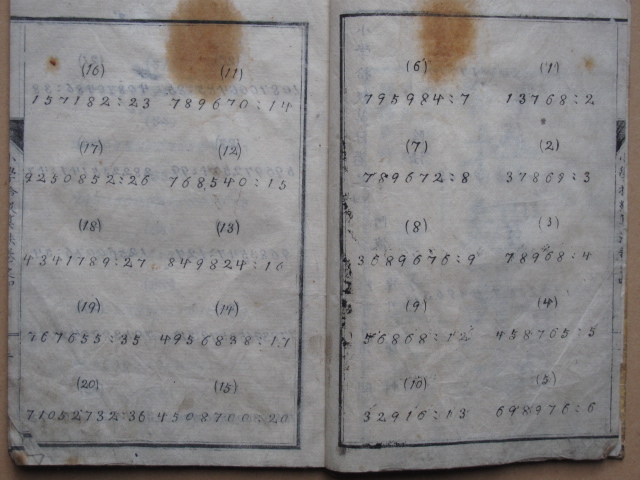 (1)
13768:2
(2)
37869:3
(3)
78968:4
(4)
458765:5
(5)
698976:6
(6)
795984:7
(7)
789672:8
(8)
3689676:9
(9)
56868:12
(10)
32916:13
(11)
789670:14
(12)
768540:15
(13)
849824:16
(14)
4956838:17
(15)
4508700:20
(16)
157182:23
(17)
9250852:26
(18)
4341789:27
(19)
767655:35
(20)
71052732:36